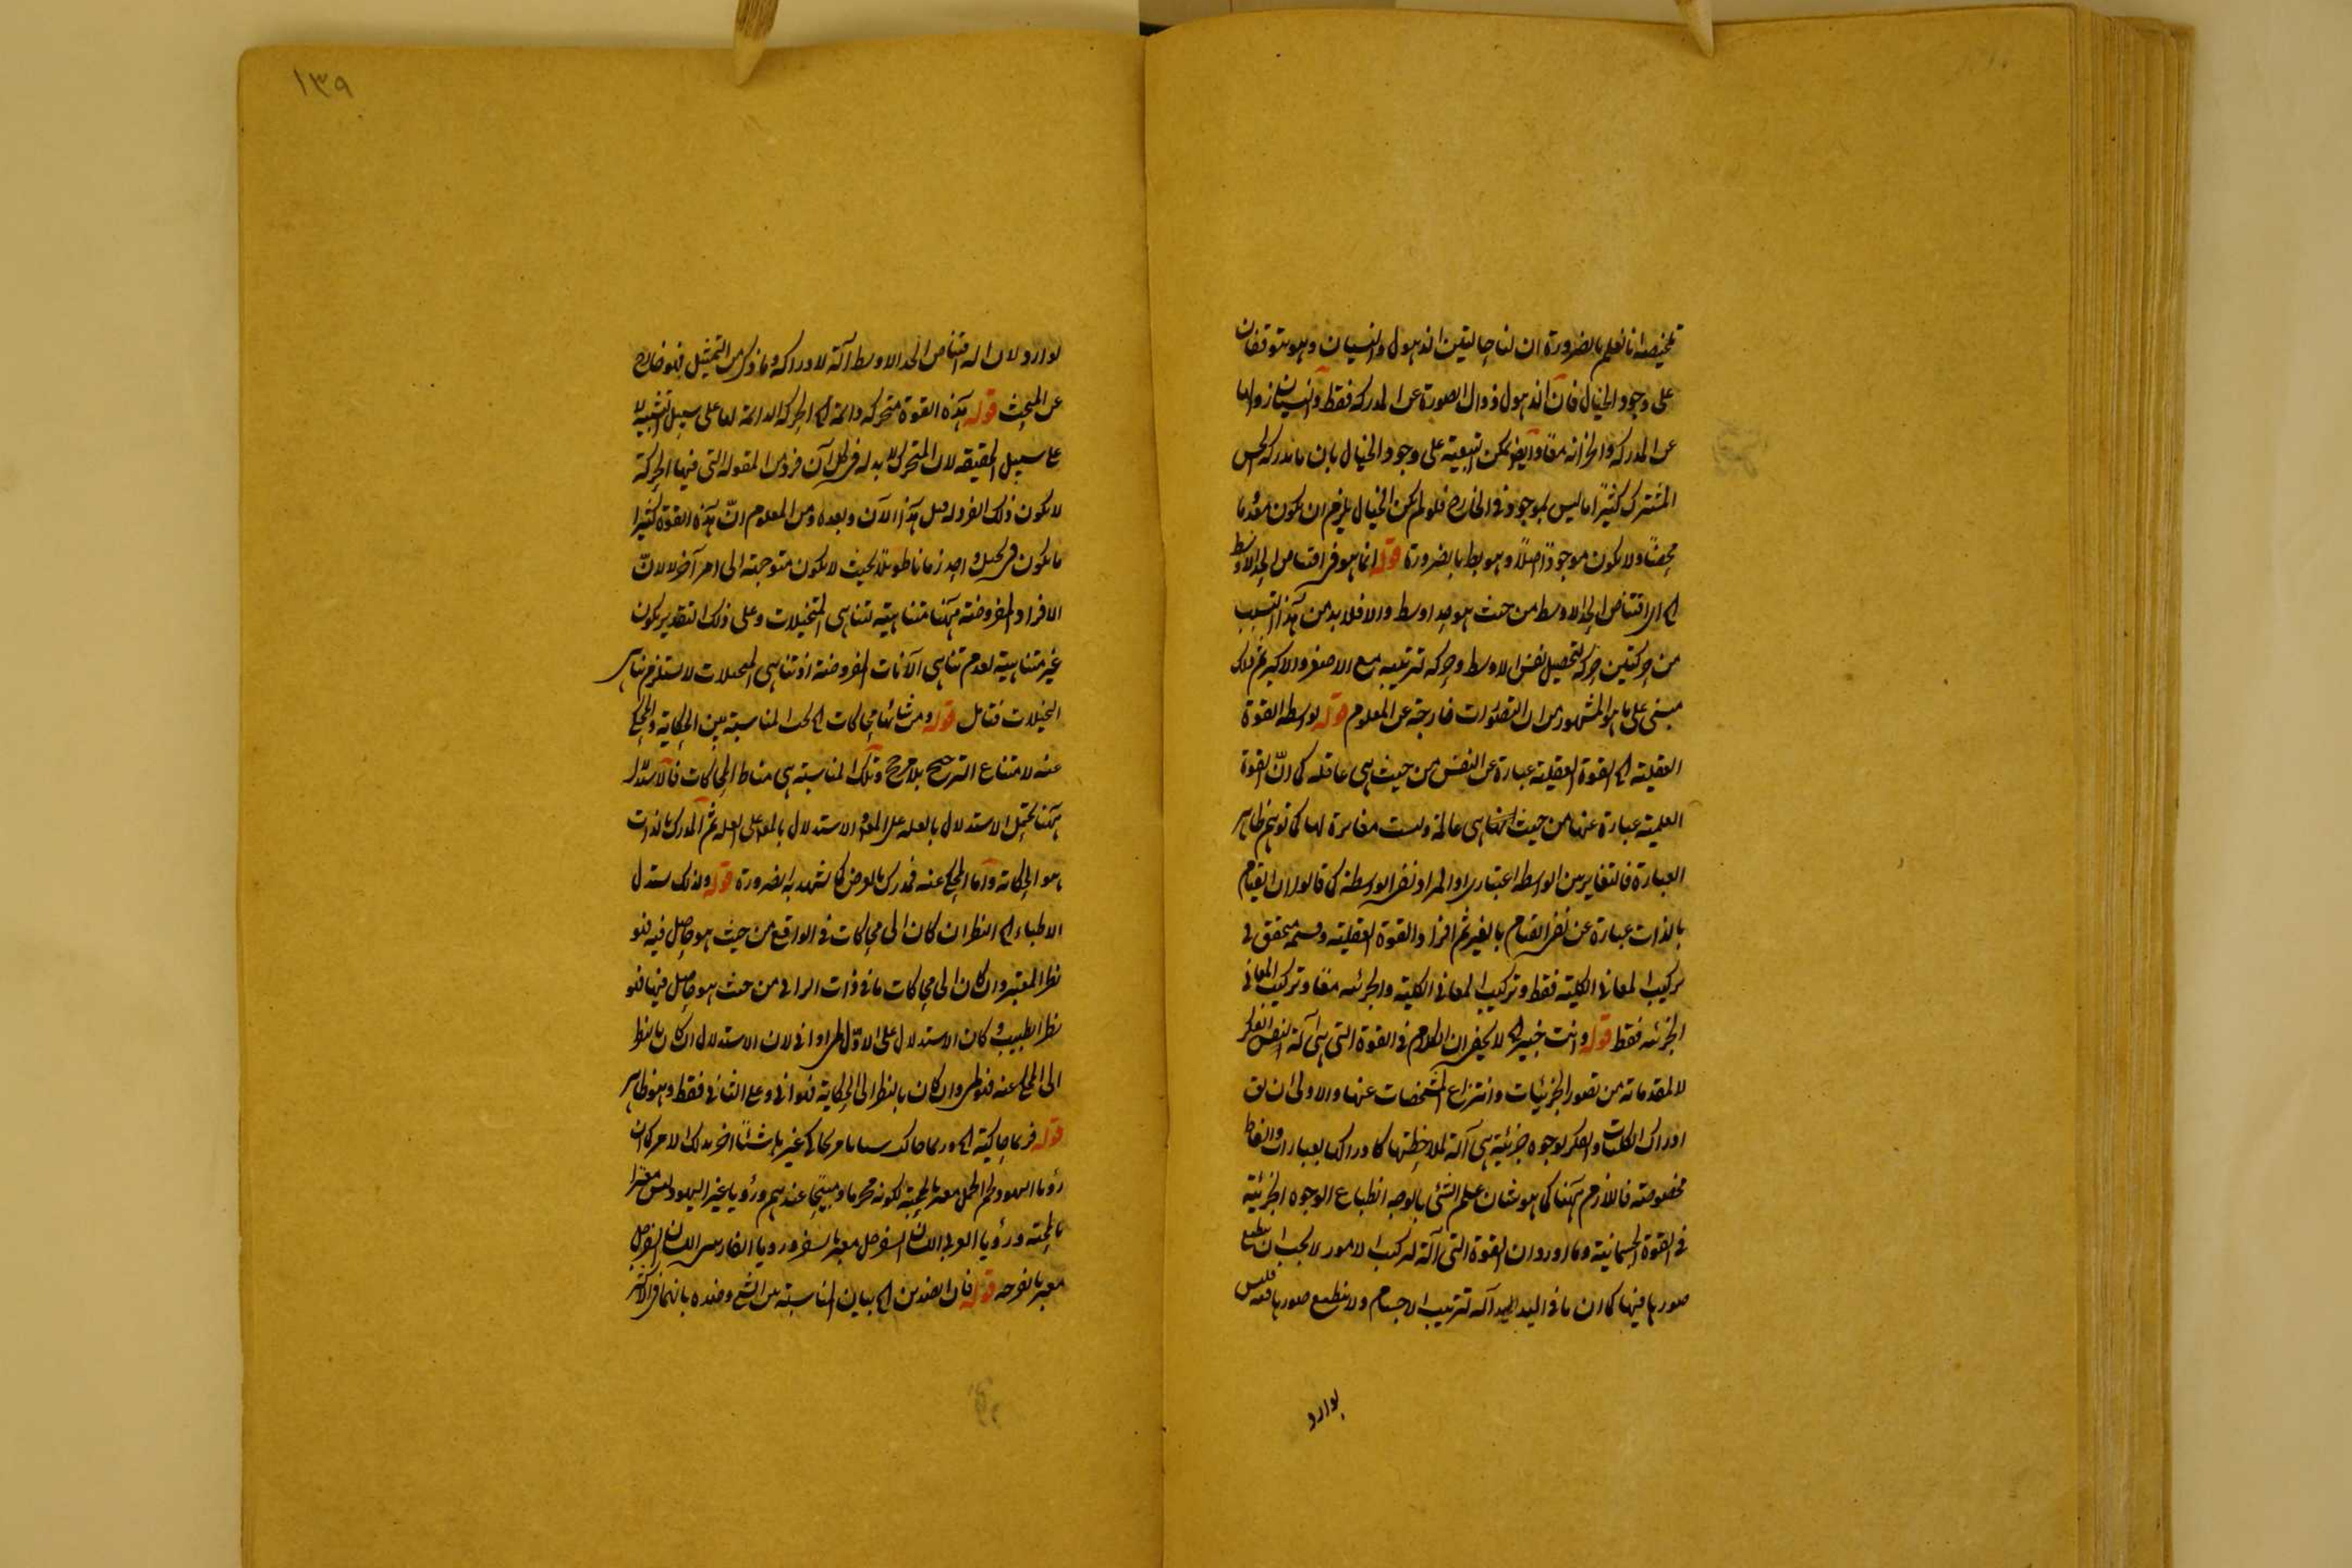 تلخيصه انا نعلم بالضرورة ان لنا حالتين الذهول والنسيان وهو يتوقفان
على وجود الخيال فان الذهول زوال الصورة عن المدركة فقط والنسيان زوالها
عن المدركة والخزانة معًا وايضًا يمكن على وجود الخيال بان ما يدركه الحس
المشترك كثيرًا ما ليس بموجود في الخارج فلو لم يكن الخيال يلزم ان يكون معدوما
محضًا ولا يكون موجودًا اصلًا وهو بط بالضرورة قوله انما هو في اقتناص الحد الاوسط
اى اقتناص الحد الاوسط من حيث هو حد اوسط والا فلا بد من هذا
من حركتين حركة لتحصيل نفس الاوسط وحركة لترتيبه مع الاصغر والاكبر ثم ذلك
مبنى على ما هو المشهور من ان التصورات خارجة عن المعلوم قوله بواسطة القوة
العقلية اى القوة العقلية عبارة عن النفس من حيث هى عاقلة كما انّ القوة
العلمية عبارة عنها من حيث انها هى عالمة وليست مغايرة لها كما توهم ظاهر
العبارة فالتغاير بين الواسطة اعتبارى او المراد نفى الواسطة كما قالوا ان القيام
بالذات عبارة عن نفى القيام بالغير ثم افراد القوة العقلية وقسمة متحقق فى
تركيب المعانى الكلية فقط وتركيب المعانى الكلية والجزئية معًا وتركيب المعانى
الجزئية فقط قوله وانت خبير اى لا يخفى ان الكلام فى القوة التى هى آلة النفس الفكر
لا لمقدماته من تصور الجزئيات وانتزاع المشخصات عنها والاولى ان يق
ادراك الكليات والفكر بوجوه جزئية هى آلة لملاحظتها كادراكها بعبارات والفاظ
مخصوصة فاللازم ههنا كما هو شان علم الشئى بالوجه انطباع الوجوه الجزئية
فى القوة الجسمانية وما اورد ان القوة التى آلة لتركيب الامور لا يجب ان ينطبع
صورها فيها كما ان ما فى اليد آلة ترتيب الاجسام ولا ينطبع صورها فيه فليس
بوارد
١٣٩
بوارد لان اقتناص الحد الاوسط آلة لادراكه وما ذكر من التمثيل فهو خارج
عن المبحث قوله هذه القوة متحركة دائمة اى الحركة الدائمة لها على سبيل التشبيه لا
على سبيل الحقيقة لان المتحرك لا بد له فى كل آن فرد من المقولة التى فيها الحركة
لا يكون ذلك الفرد له قبل هذا الآن وبعده ومن المعلوم انّ هذه القوة كثيرا
ما يكون فى تخيل واحد زمانا طويلًا بحيث لا يكون متوجهة الى امر آخر لا لانّ
الافراد المفروضة ههنا متناهية لتناهى المتخيلات وعلى ذلك التقدير يكون
غير متناهية لعدم تناهى الآنات المفروضة اذ تناهى المتخيلات لا يستلزم تناهى
التخيلات فتامل قوله ومن شانها محاكات اى تحب المناسبة بين الحكاية والمحكى
عنه لامتناع الترجيح بلا مرجح وتلك المناسبة هى مناط المحاكات فالاستدلال
ههنا يحتمل الاستدلال بالعلة على المعلول والاستدلال بالمعلول على العلة ثم المدرك بالذات
هو الحكاية واما المحكى عنه فمدرك بالعرض كما يشهد به الضرورة قوله ولذلك يستدل
الاطباء اى النظر ان كان الى محاكات فى الواقع من حيث هو حاصل فيه فهو
نظر المعتبر وان كان الى محاكات ما فى ذات الرائى من حيث هو حاصل فيها فهو
نظر الطبيب وكان الاستدلال على الاوّل لمى او انى لان الاستدلال ان كان بالنظر
الى المحكى عنه فهو لمى وان كان بالنظر الى الحكاية فهو انى وعلى الثانى فقط وهو ظاهر
قوله فربما حاكية اى وربما حاكت شيئا بامر يحاكى غيره بل شيئًا اخر بذلك الامر كما ان
رؤيا اليهود لحم الجمل معبر بالجبة لكونه محرما وقبيحًا عندهم ورؤيا غير اليهود ليس معبرا
بالجبة ورؤيا العربى اللسان السفرجل معبر بالسفر ورؤيا الفارسى اللسان السفرجل
معبر بالفرحه قوله فان الضدين اى بيان المناسبة بين الشئ وضده بانهما فى الاكثر